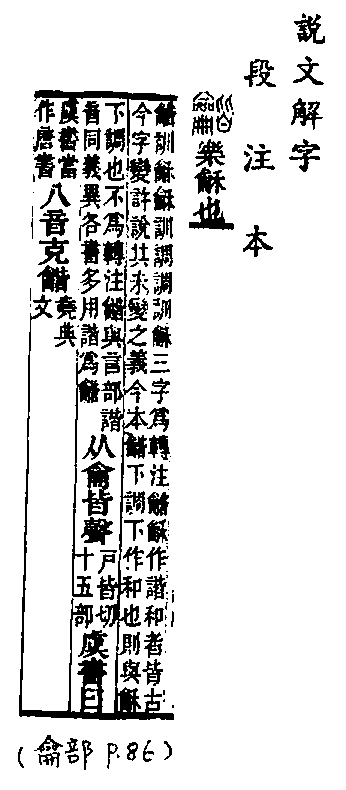 說文解字
段注本
龤 樂龢也
龤訓龢龢訓調調訓龢三字爲轉注龤龢作諧和者皆古
今字變許說其未變之義今本龤下調下作和也則與龢
下調也不爲轉注龤與言部諧
音同義異各書多用諧爲龤
从龠皆聲
戶皆切
十五部
虞書曰
虞書當
作唐書
八音克龤
堯典
文
(龠部 p.86)